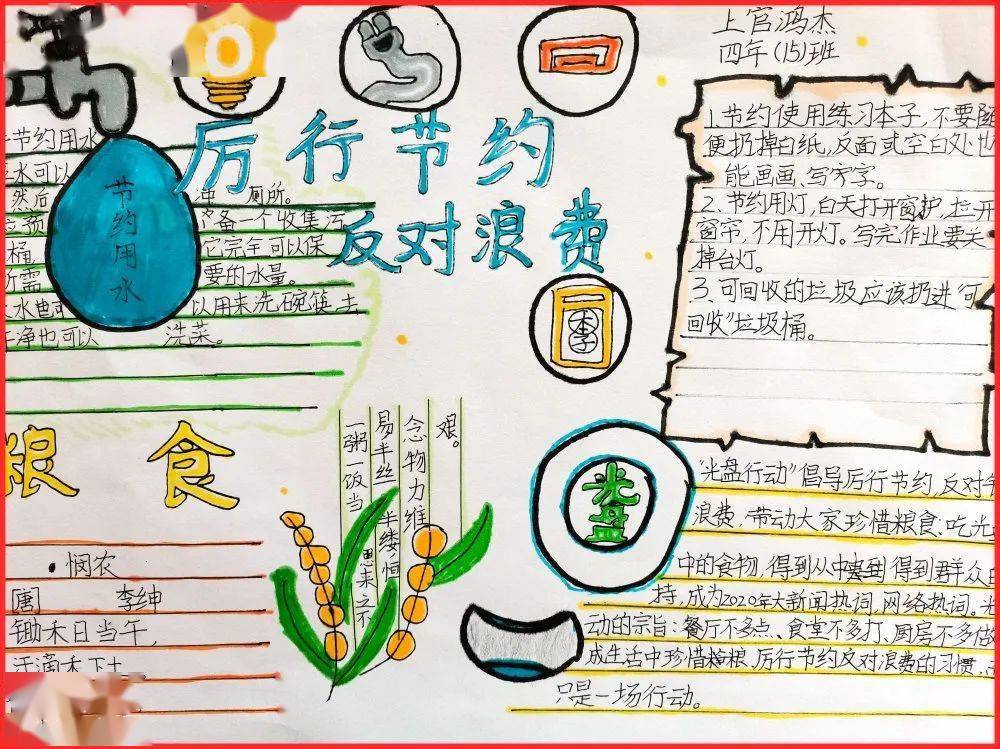 上官鸿杰
四年(15)班
厉行节约
反对浪费
节约用水
水可以 冲 厕所。
然后 备一个收集污
桶, 它完全可以保
所需 要的水量。
以用来洗碗筷,去
净也可以 洗菜。
节约用水
1.节约使用练习本子,不要随
便扔掉白纸,反面或空白处也
能画画、写字。
2.节约用灯,白天打开窗护,拉开
窗帘,不用开灯。写完作业要关
掉台灯。
3.可回收的垃圾应该扔进“可
回收”垃圾桶。
本子
粮食
·悯农
唐 李绅
锄禾日当午,
汗滴禾下土
一粥一饭当
思来之不
易半丝半缕恒
念物力维
艰。
光盘
“光盘行动”倡导厉行节约,反对
浪费,带动大家珍惜粮食、吃光
中的食物,得到从中央到得到群众
持,成为2020年大新闻热词,网络热词。
动的宗旨:餐厅不多点、食堂不多打、厨房不多做
成生活中珍惜粮,厉行节约反对浪费的习惯,
只是一场行动。